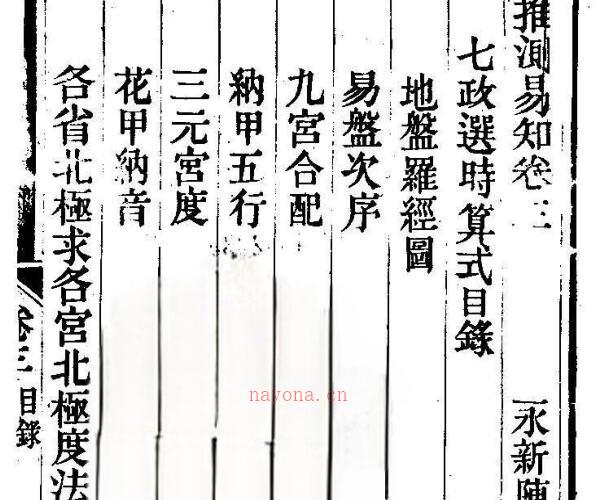 推測易知卷三
永新陳
七政選時算式目錄
地盤羅經圖
易盤次序
九宮合配
納甲五行
三元宮度
花甲納音
各省北極求各宮北極度法
卷三 目錄
nayona.cn